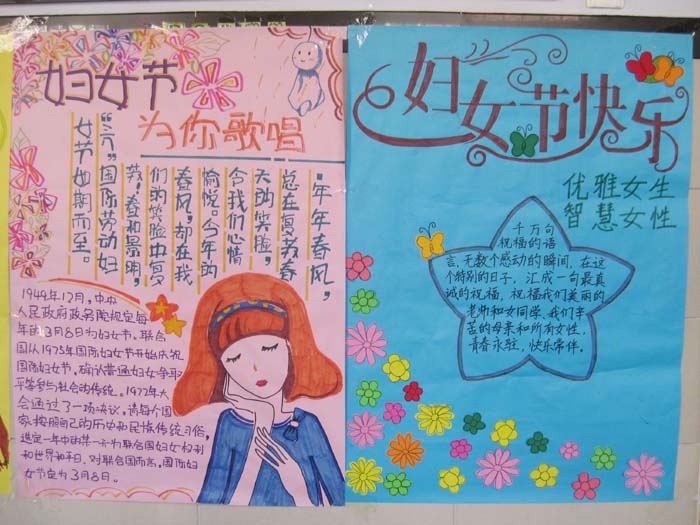 妇女节
为你歌唱
年年春风,
总在复苏春
天的笑脸,
含我们心情
愉悦。今年的
春风,却在我
们的笑脸中复
苏!春和景明,
“三八”国际劳动妇
女节如期而至。
1949年12月,中央
人民政府政务院规定每
年的3月8日为妇女节。联合
国从1975年国际妇女节开始庆祝
国际妇女节,确认普通妇女争取
平等参与社会的传统。1977年大
会通过了一项决议,请每个国
家按照自己的历史和民族传统习俗,
选定一年中的某一天为联合国妇女权利
和世界和平日。对联合国而言,国际妇
女节定为3月8日。
妇女节快乐
优雅女生
智慧女性
千万句
祝福的语
言,无数个感动的瞬间,在这
个特别的日子,汇成一句最真
诚的祝福,祝福我们美丽的
老师和女同学,我们辛
苦的母亲和所有女性,
青春永驻,快乐常伴。